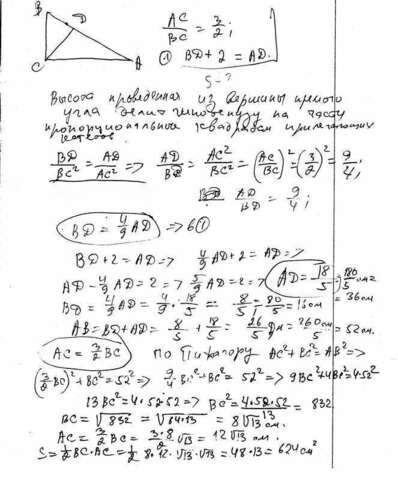 B
D
C
A
AC/BC = 3/2;
① BD + 2 = AD.
S - ?
Высота проведённая из вершины прямого
угла делит гипотенузу на части
пропорциональные квадратам прилежащих
катетов
BD/BC² = AD/AC² => AD/BD = AC²/BC² = (AC/BC)² = (3/2)² = 9/4;
AD/BD = 9/4;
BD = 4/9 AD => в ①
BD + 2 = AD => 4/9 AD + 2 = AD =>
AD - 4/9 AD = 2 => 5/9 AD = 2 => AD = 18/5 = 180/5 см =
= 36 см
BD = 4/9 AD = 4/9 · 18/5 = 8/5 = 80/5 = 16 см
AB = BD + AD = 8/5 + 18/5 = 26/5 Дм = 260/5 см = 52 см.
AC = 3/2 BC по Пифагору AC² + BC² = AB² =>
(3/2 BC)² + BC² = 52² => 9/4 BC² + BC² = 52² => 9BC² + 4BC² = 4·52²
13BC² = 4·52·52 => BC² = 4·52·52/13 = 832
BC = √832 = √64·13 = 8√13 см.
AC = 3/2 BC = 3·8/2 √13 = 12√13 см.
S = 1/2 BC·AC = 1/2 8·12·√13·√13 = 48·13 = 624 см²